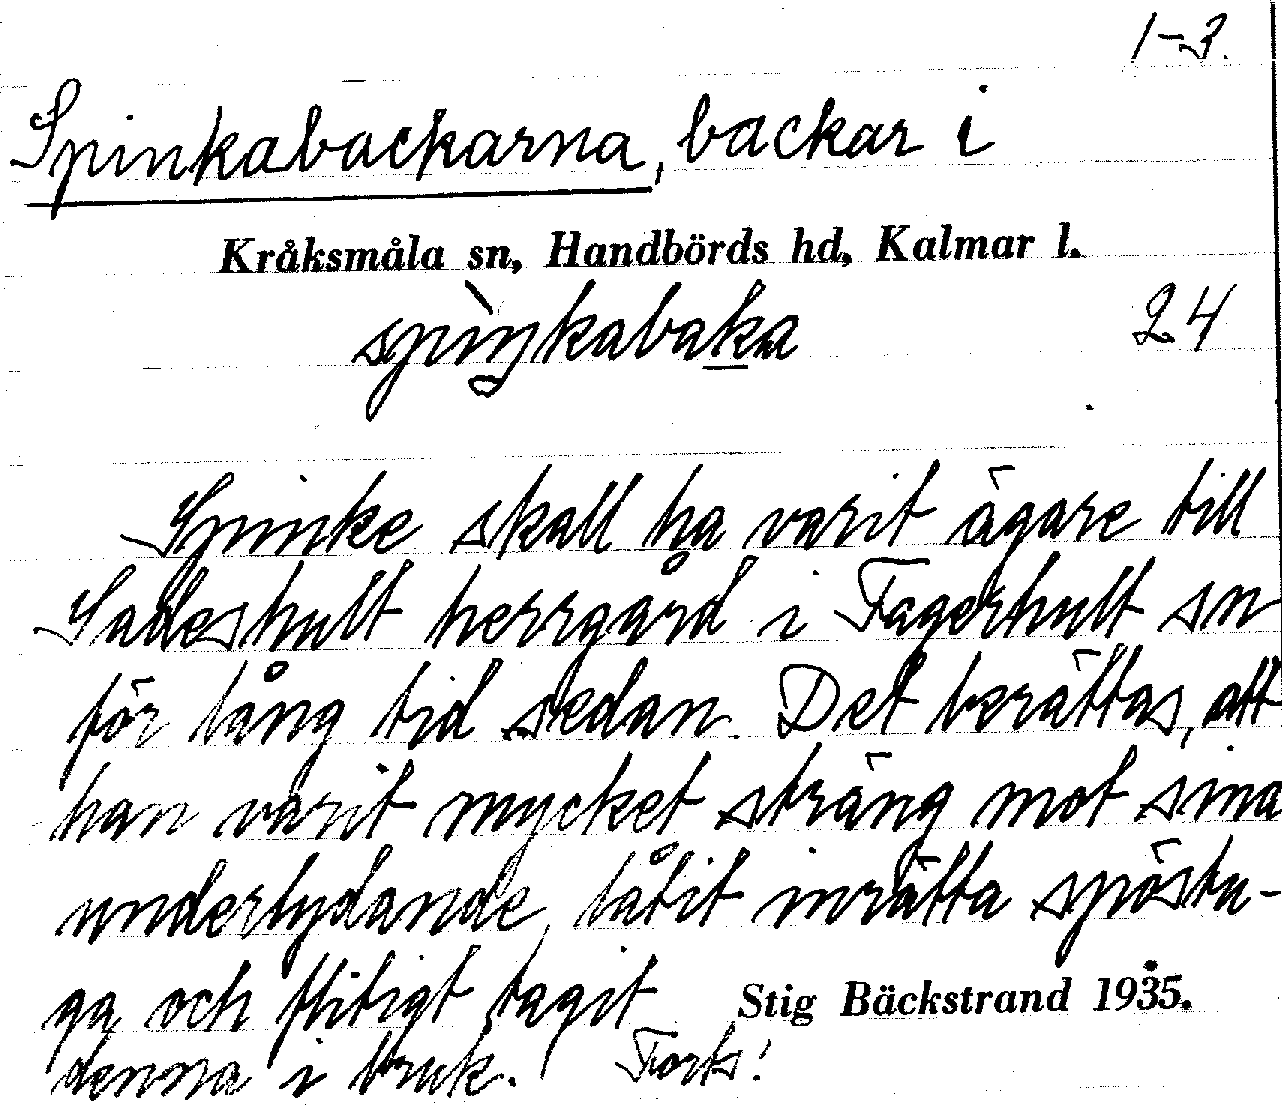 1-3.
Spinkabackarna, backar i
Kråksmåla sn, Handbörds hd, Kalmar l.
spìŋkabaka
24
Spinke skall ha varit ägare till
Salleshult herrgård i Fagerhult sn
för lång tid sedan. Det berättas, att
han varit mycket sträng mot sina
underlydande, låtit inrätta spöstu-
ga och flitigt tagit
Stig Bäckstrand 1935.
denna i bruk. Forts!